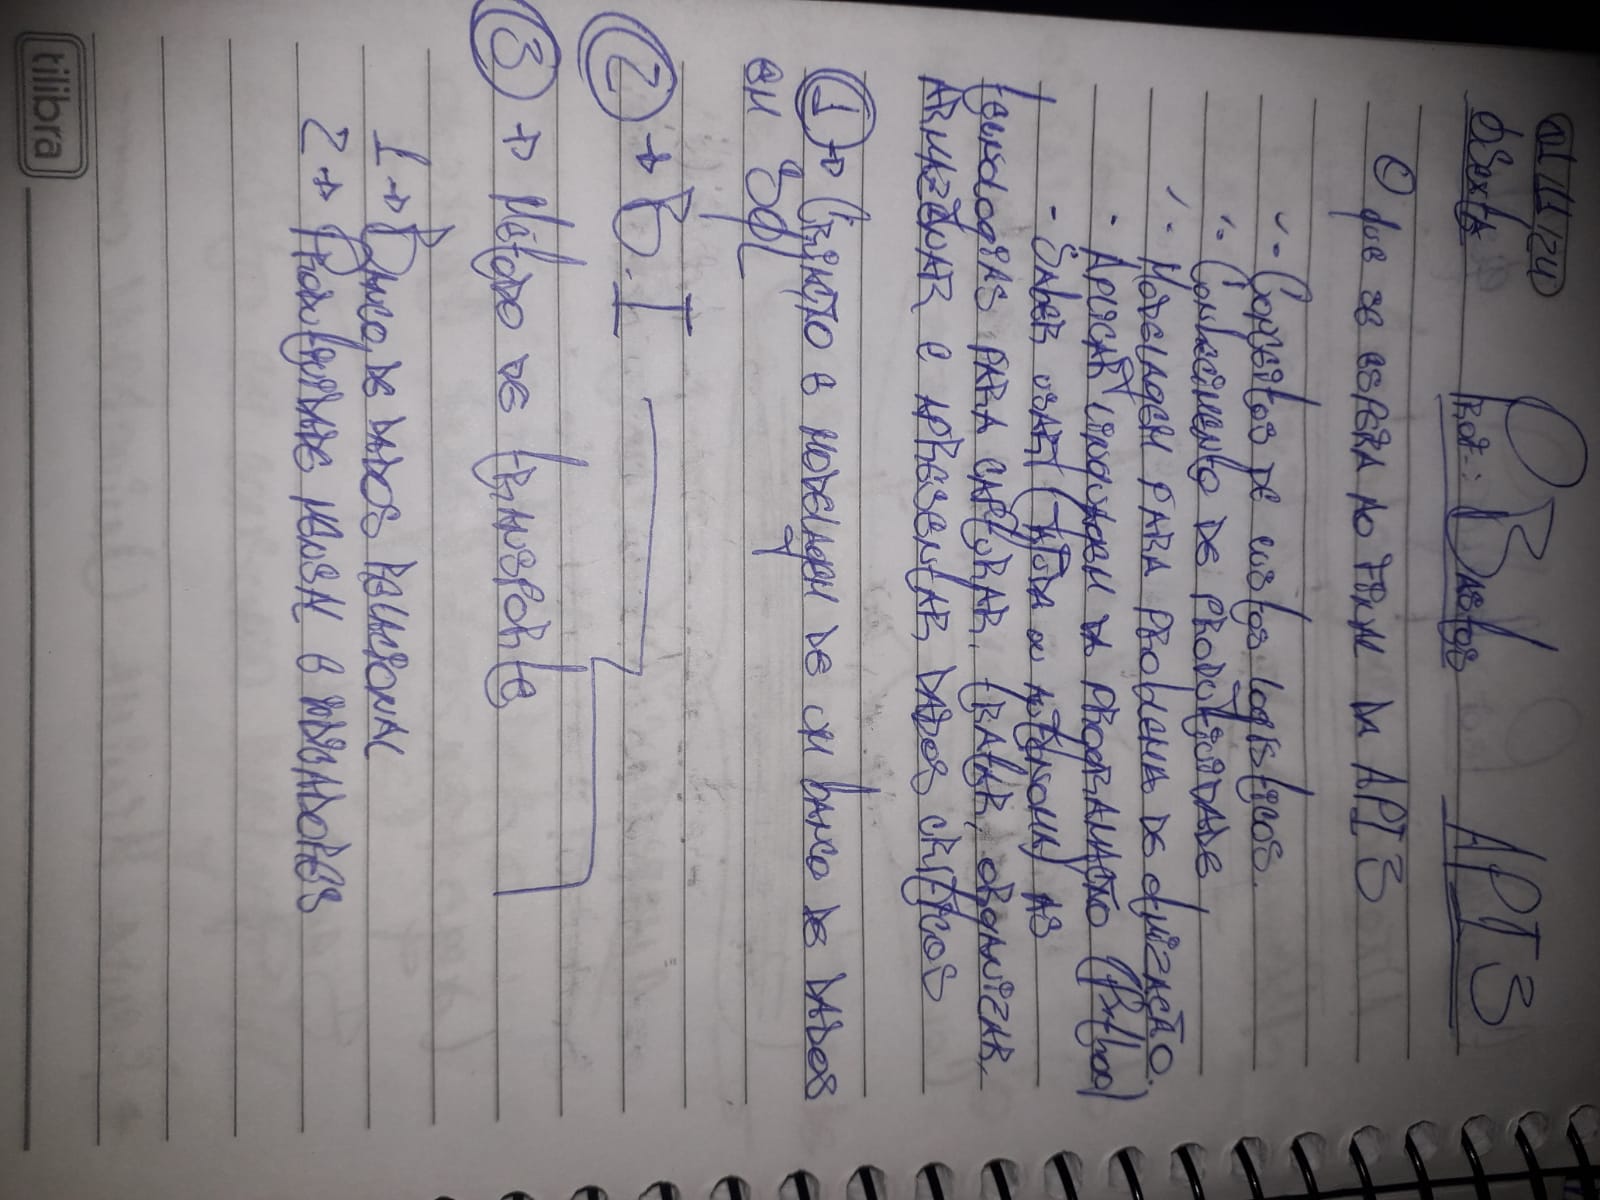 01/11/24
Sexta
Prof.: Bastos
API 3
O que se espera ao final da API 3
- Conceitos de custos logísticos.
- Conhecimento de produtividade
- Modelagem para problema de otimização.
- Aplicar linguagem da programação (Python)
- Saber usar ( ajuda ou autônoma) as
tecnologias para capturar, tratar, organizar,
armazenar e apresentar dados críticos
1 → Criação e modelagem de um banco de dados
em SQL
2 → B.I
3 → Método de transporte
1 → Banco de dados relacional
2 → Produtividade mensal e indicadores
tilibra